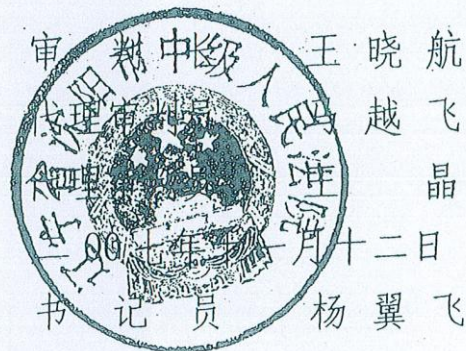 审判长 王晓航
代理审判员 马越飞
代理审判员 王晶
二〇〇七年十一月十二日
书记员 杨翼飞
辽宁省沈阳市中级人民法院